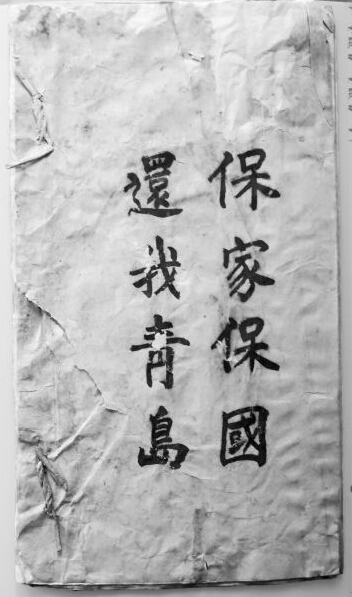 保家保國
還我青島